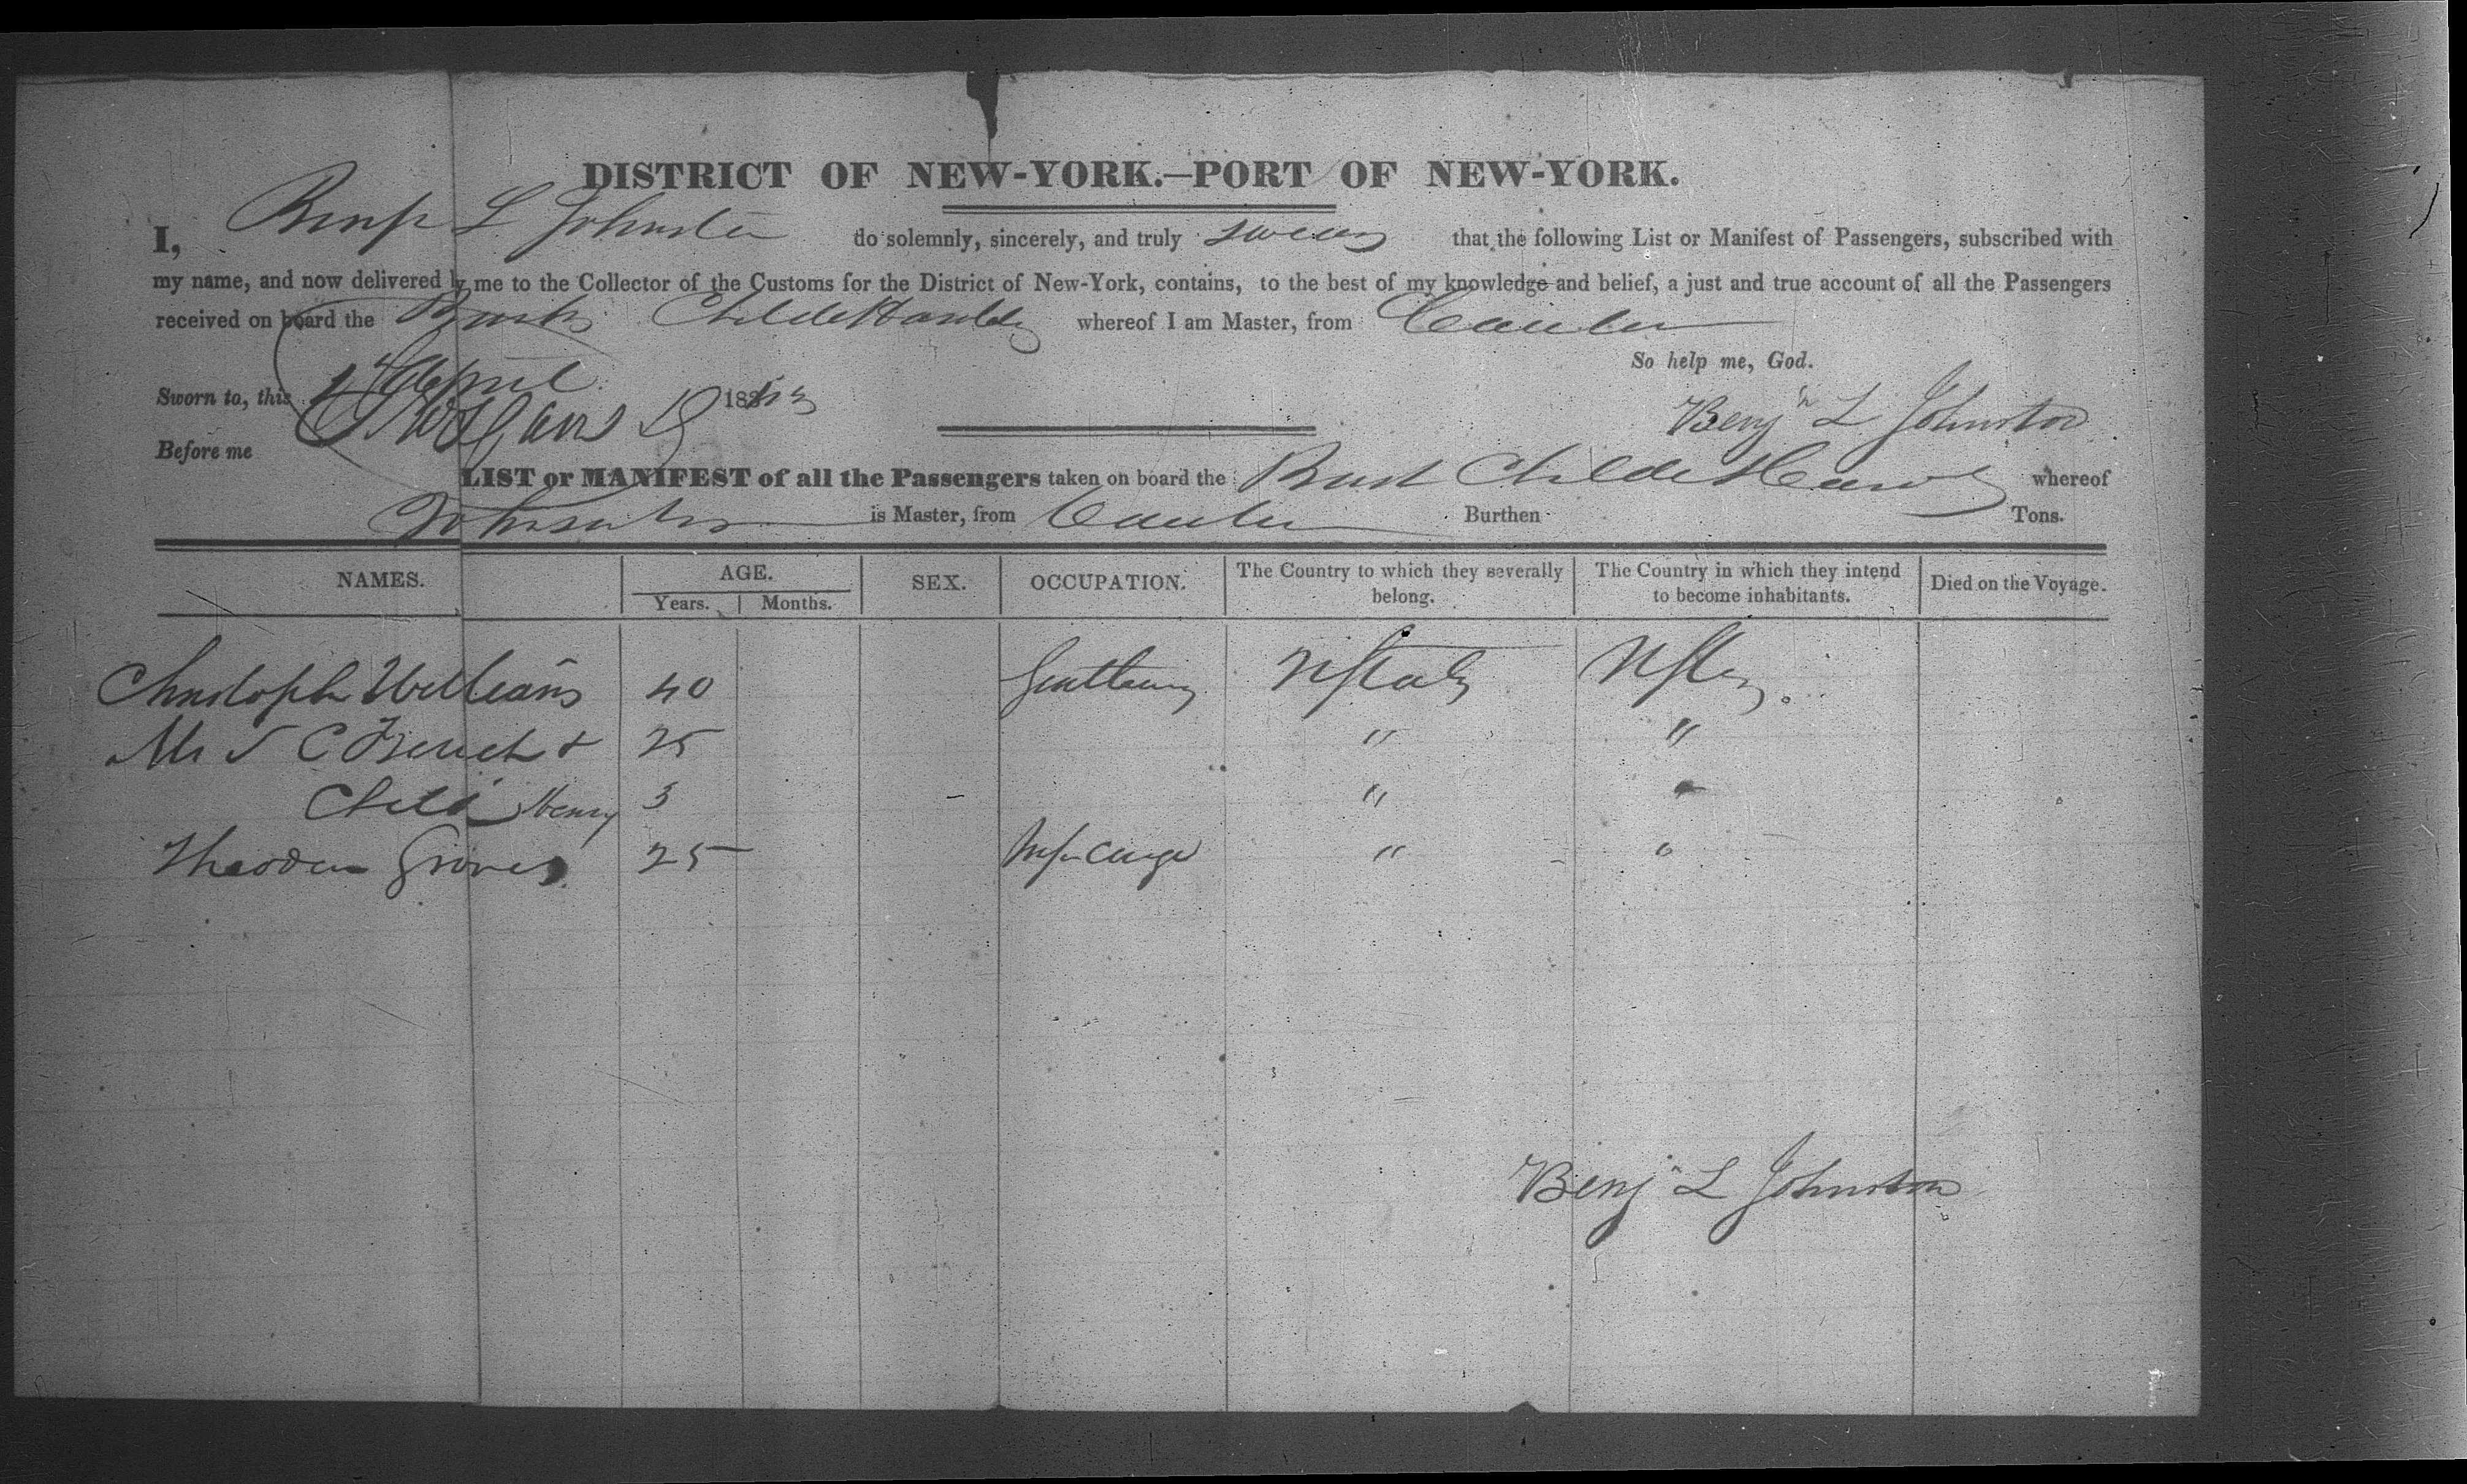 DISTRICT OF NEW-YORK.—PORT OF NEW-YORK.
I, Benj L Johnston do solemnly, sincerely, and truly swear that the following List or Manifest of Passengers, subscribed with
my name, and now delivered by me to the Collector of the Customs for the District of New-York, contains, to the best of my knowledge and belief, a just and true account of all the Passengers
received on board the Bark Childe Harold whereof I am Master, from Canton
So help me, God.
Sworn to, this April 18
Benjn L Johnston
Before me
LIST or MANIFEST of all the Passengers taken on board the Bark Childe Harold whereof
Johnston is Master, from Canton Burthen Tons.
NAMES. AGE. SEX. OCCUPATION. The Country to which they severally belong. The Country in which they intend to become inhabitants. Died on the Voyage.
Years. Months.
Christopher Williams 40 Gentleman
C French & 25 " "
Child Henry 3 " "
Theodore Groves 25 " "
Benjn L Johnston